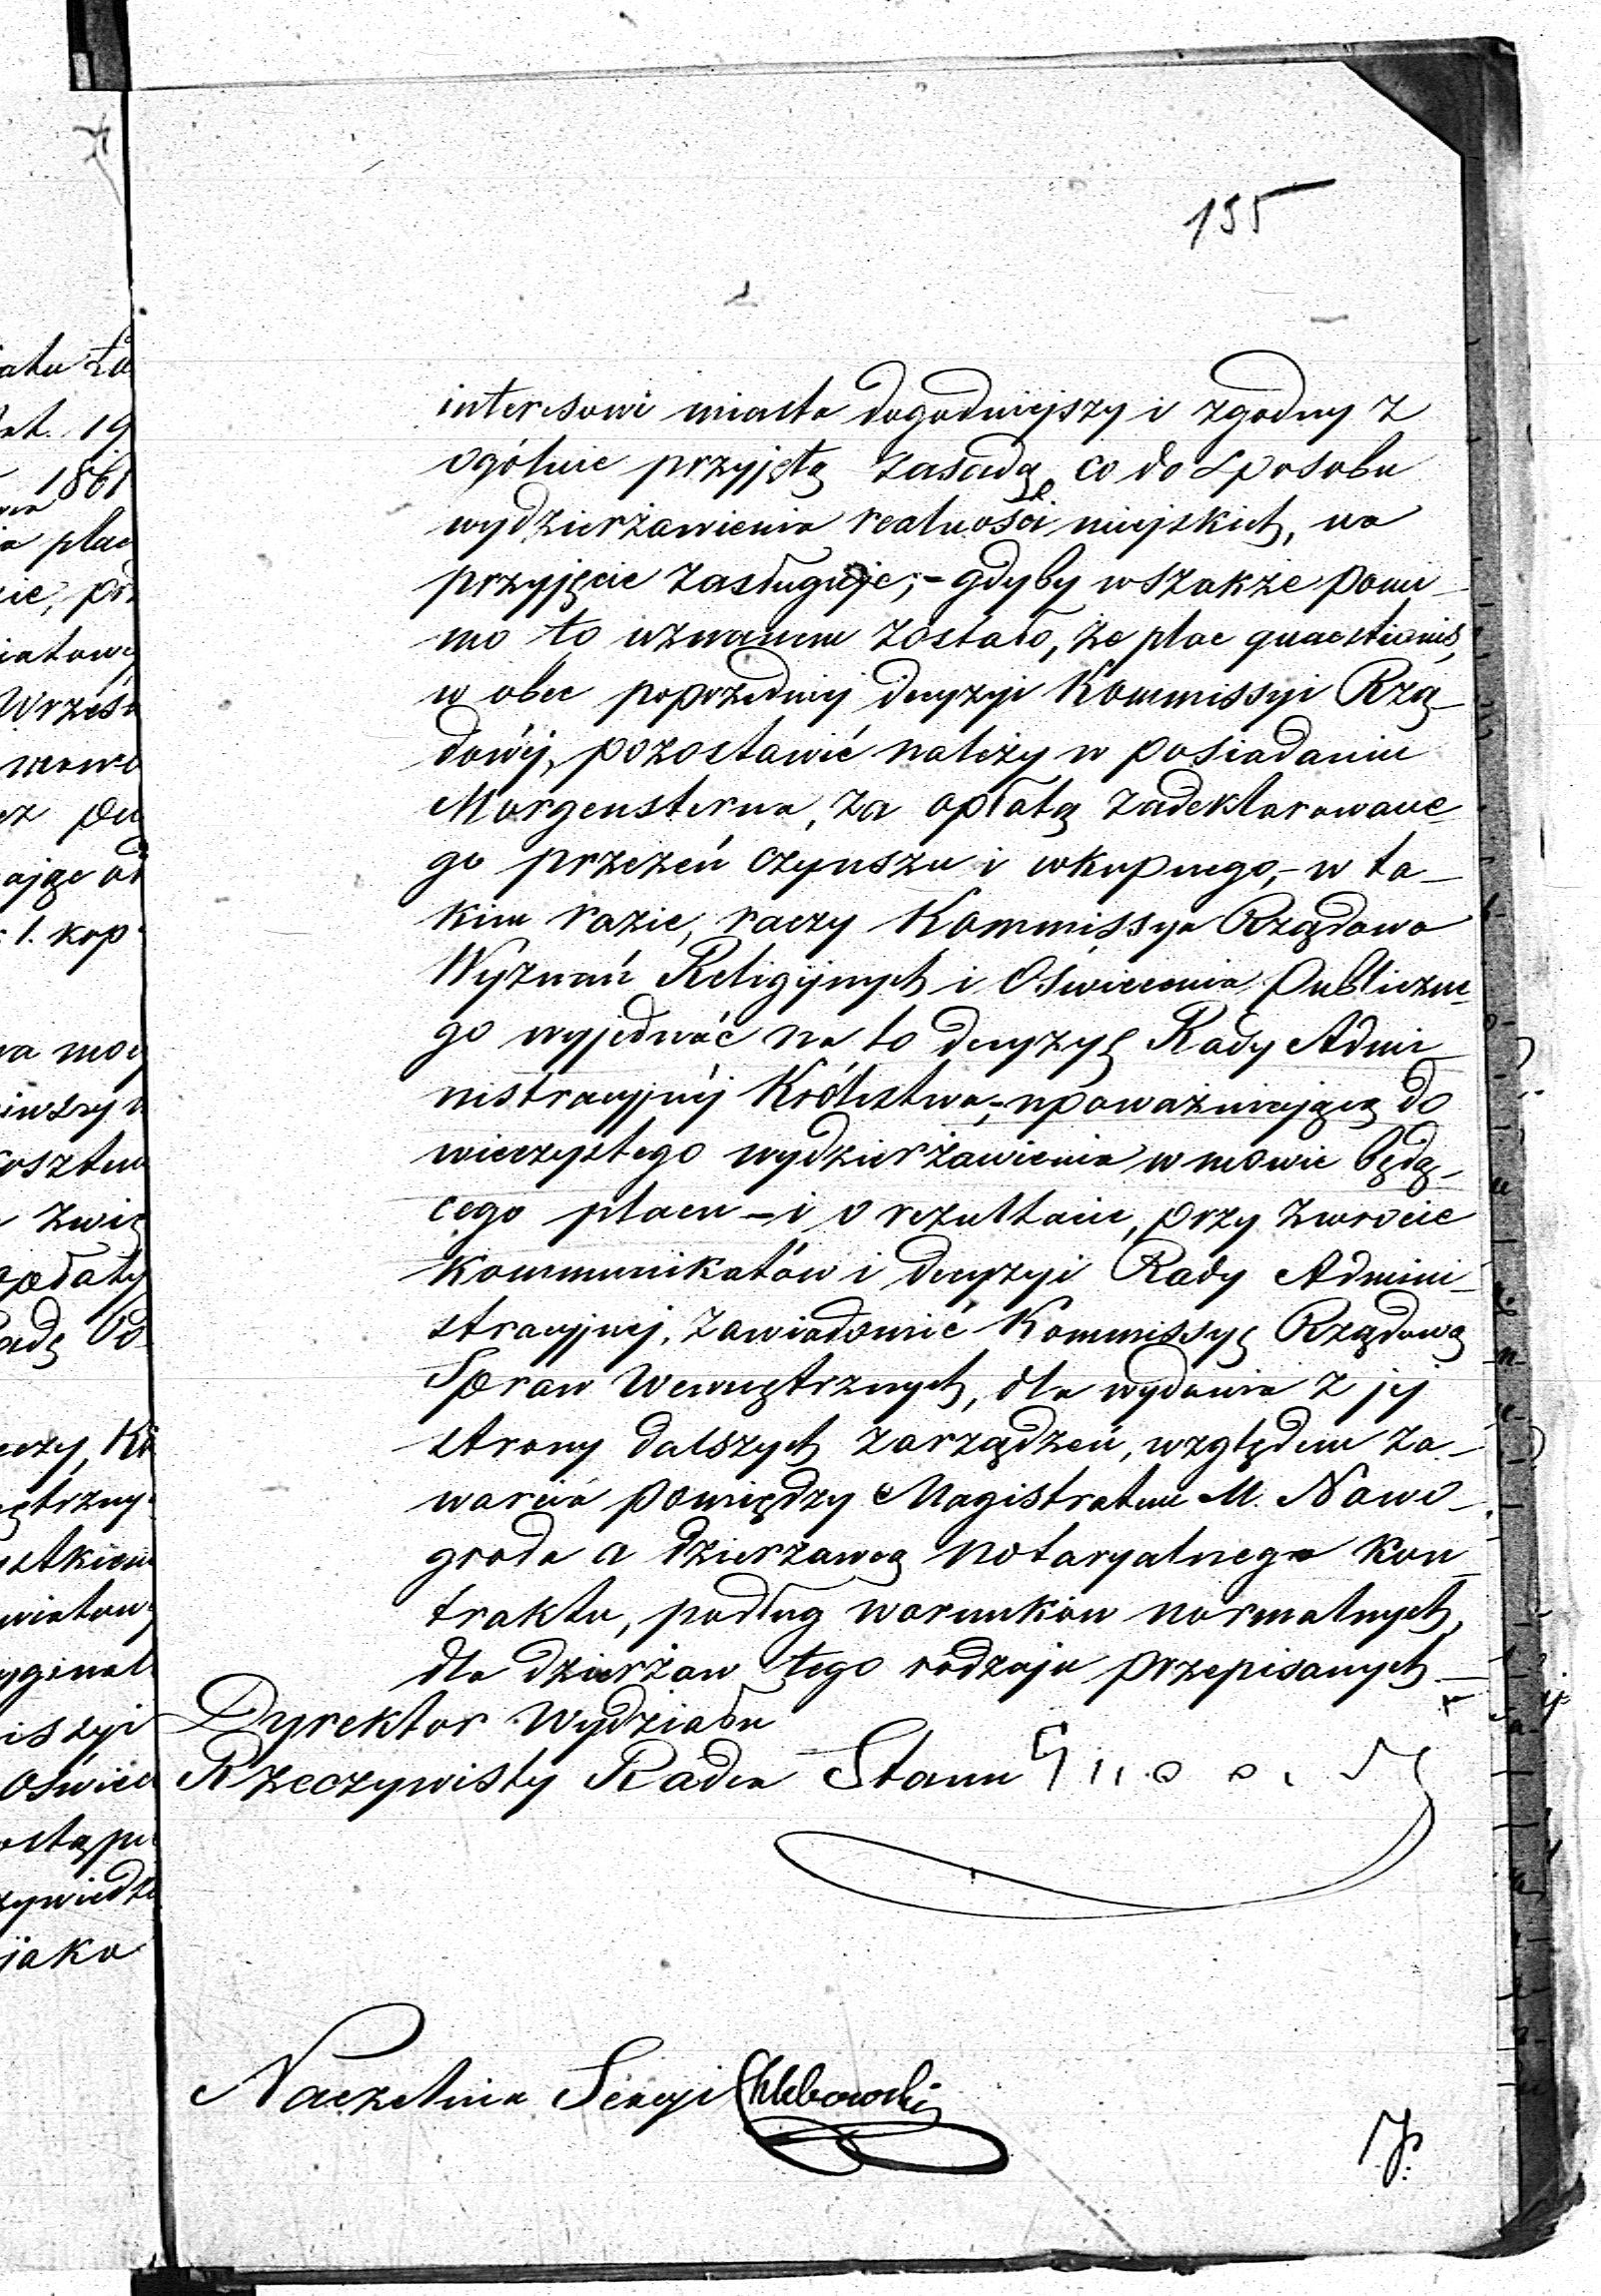 155
interesowi miasta dogodniejszy i zgodny z
ogólnie przyjętą zasadą co do sposobu
wydzierżawienia realności miejskich, na
przyjęcie zasługuje;- gdyby wszakże pomi-
mo to uznanem zostało, że plac quaestionis,
w obec poprzedniej decyzyi Kommissyi Rzą-
dowéj, pozostawić należy w posiadaniu
Morgensterna, za opłatą zadeklarowane-
go przezeń czynszu i wkupnego,- w ta-
kim razie, raczy Kommissya Rządowa
Wyznań Religijnych i Oświecenia Publiczne-
go wyjednać na to decyzyę Rady Admi-
nistracyjnéj Królestwa, upoważniającą do
wieczystego wydzierżawienia w mowie będą-
cego placu - i o rezultacie, przy zwrocie
Kommunikatów i decyzyi Rady Admini-
stracyjnej, zawiadomić Kommissyę Rządową
Spraw Wewnętrznych, dla wydania z jej
strony dalszych zarządzeń, względem za-
warcia pomiędzy Magistratem M. Nowo-
groda a dzierżawcą notaryalnego kon-
traktu, podług warunków normalnych,
dla dzierżaw tego rodzaju przepisanych.-
Dyrektor Wydziału
Rzeczywisty Radca Stanu
Naczelnik Sekcyi Chlebowski